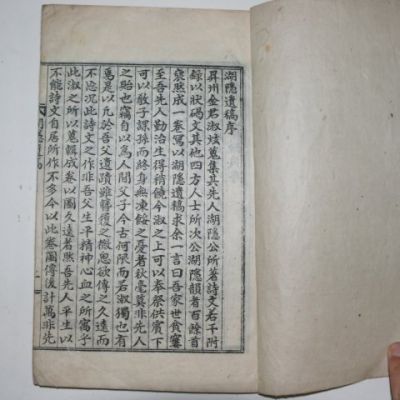 湖隱遺稿序
昇州金君淑炫蒐集其先人湖隱公所著詩文若干附
錄以狀碣文其他四方人士所次公湖隱韻者百餘首
裒然成一卷寫以湖隱遺稿求余一言曰吾家世食窶
至吾先人勤治生得稍饒今淑之上可以奉祭供賓下
可以敎子課孫而終身無凍餒之憂者秋毫莫非先人
之貽也竊自以爲人間父子今古何限而若淑獨也有
焉是以凡於吾父遺蹟雖髮膚之微思欲傳之久遠而
不忘況此詩文之作非吾父生平精神心血之所寓乎
此淑之所以蒐輯成卷以圖久遠者然吾先人平生以
不能詩文自居所作不多今以此卷圖傳後計萬非先